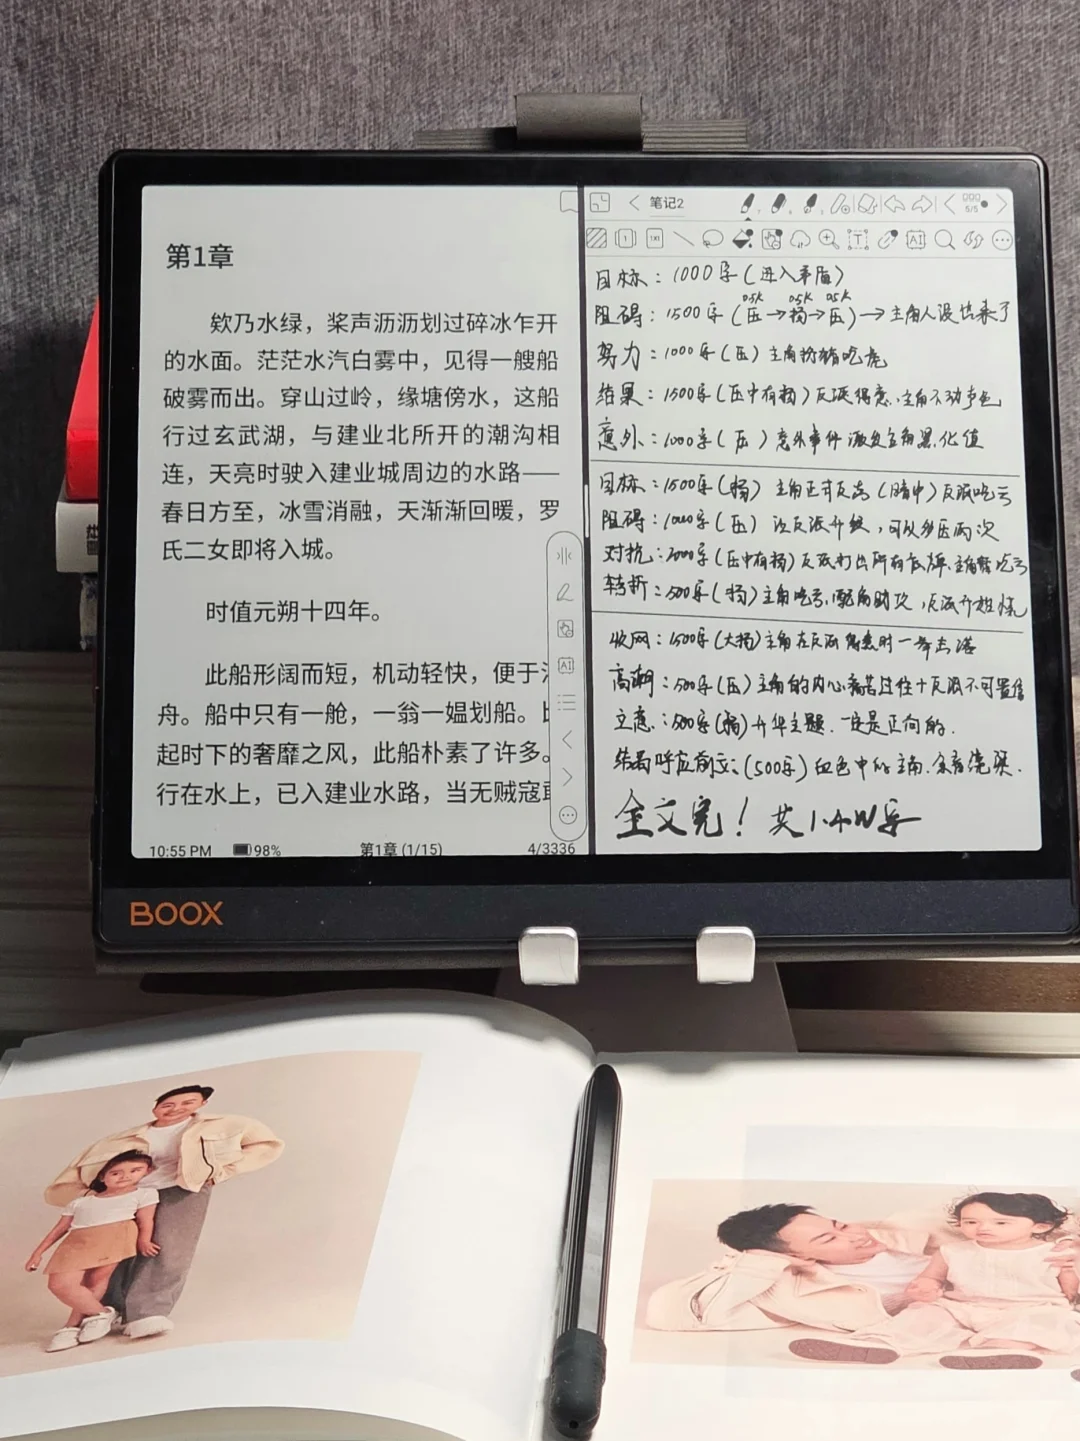 第1章
欸乃水绿，桨声沥沥划过碎冰乍开
的水面。茫茫水汽白雾中，见得一艘船
破雾而出。穿山过岭，缘塘傍水，这船
行过玄武湖，与建业北所开的潮沟相
连，天亮时驶入建业城周边的水路——
春日方至，冰雪消融，天渐渐回暖，罗
氏二女即将入城。
时值元朔十四年。
此船形阔而短，机动轻快，便于
舟。船中只有一舱，一翁一媪划船。
起时下的奢靡之风，此船朴素了许多。
行在水上，已入建业水路，当无贼寇
10:55 PM 98% 第1章 (1/15) 4/3336
笔记2
5/5
目标：1000字（进入矛盾）
0.5K 0.5K 0.5K
阻碍：1500字（压→扬→压）→主角人设出来了
努力：1000字（压）主角扮猪吃虎
结果：1500字（压中有扬）反派得意，主角不动声色
意外：1000字（压）意外事件激发主角黑化值
目标：1500字（扬）主角正式反击（暗中）反派吃亏
阻碍：1000字（压）反派升级，可以多压两次
对抗：2000字（压中有扬）反派打出所有底牌，主角暂吃亏
转折：500字（扬）主角吃亏，配角助攻，反派开始慌
收网：1500字（大扬）主角在反派得意时一举击溃
高潮：500字（压）主角的内心痛苦过往+反派不可置信
立意：500字（扬）升华主题，一定是正向的.
结局呼应前文：（500字）血色中的主角，余音绕梁.
全文完！共1.4W字
BOOX